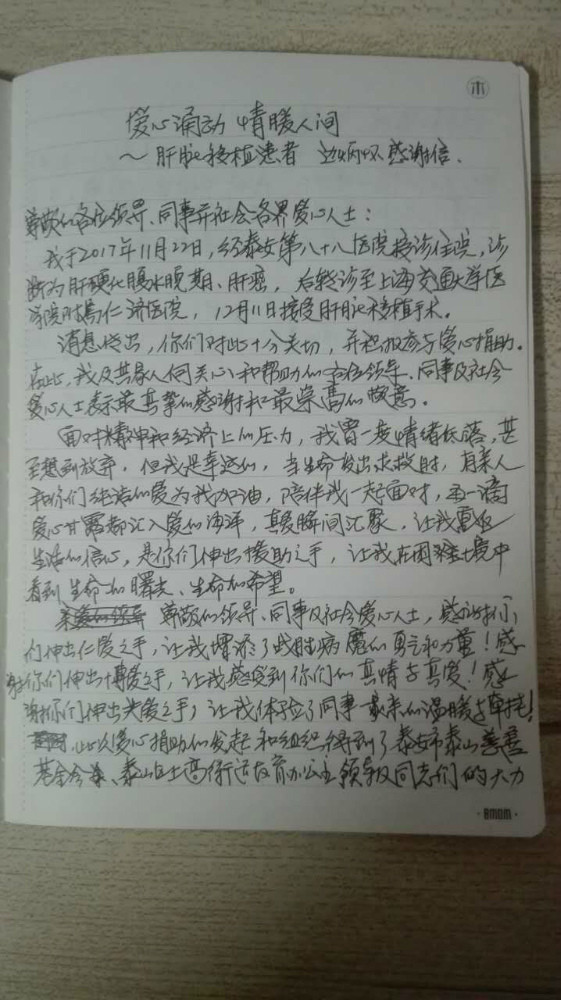 木
爱心涌动 情暖人间
～肝脏移植患者 边炳怀感谢信.
尊敬的各位领导、同事并社会各界爱心人士：
我于2017年11月22日，经泰安第八十八医院接诊住院，诊
断为肝硬化腹水晚期、肝癌，后转诊至上海交通大学医
学院附属仁济医院，12月11日接受肝脏移植手术。
消息传出，你们对此十分关切，并积极参与爱心捐助。
在此，我及其家人向关心和帮助的各位领导、同事及社会
爱心人士表示最真挚的感谢和最崇高的敬意。
面对精神和经济上的压力，我曾一度情绪低落，甚
至想到放弃，但我是幸运的，当生命发出求救时，有亲人
和你们纯洁的爱为我加油，陪伴我一起面对，每一滴
爱心甘露都汇入爱的海洋，真爱瞬间汇聚，让我重拾
生活的信心，是你们伸出援助之手，让我在困难境中
看到生命的曙光、生命的希望。
尊敬的领导、同事及社会爱心人士，感谢你们
们伸出仁爱之手，让我增添了战胜病魔的勇气和力量！感
谢你们伸出博爱之手，让我感受到你们的真情与真爱！感
谢你们伸出关爱之手，让我体验了同事一般亲的温暖与牵挂！
此次爱心捐助的发起和组织得到了泰安市泰山慈善
基金会、泰山区上高街道教育办公室领导及同志们的大力
BMDM